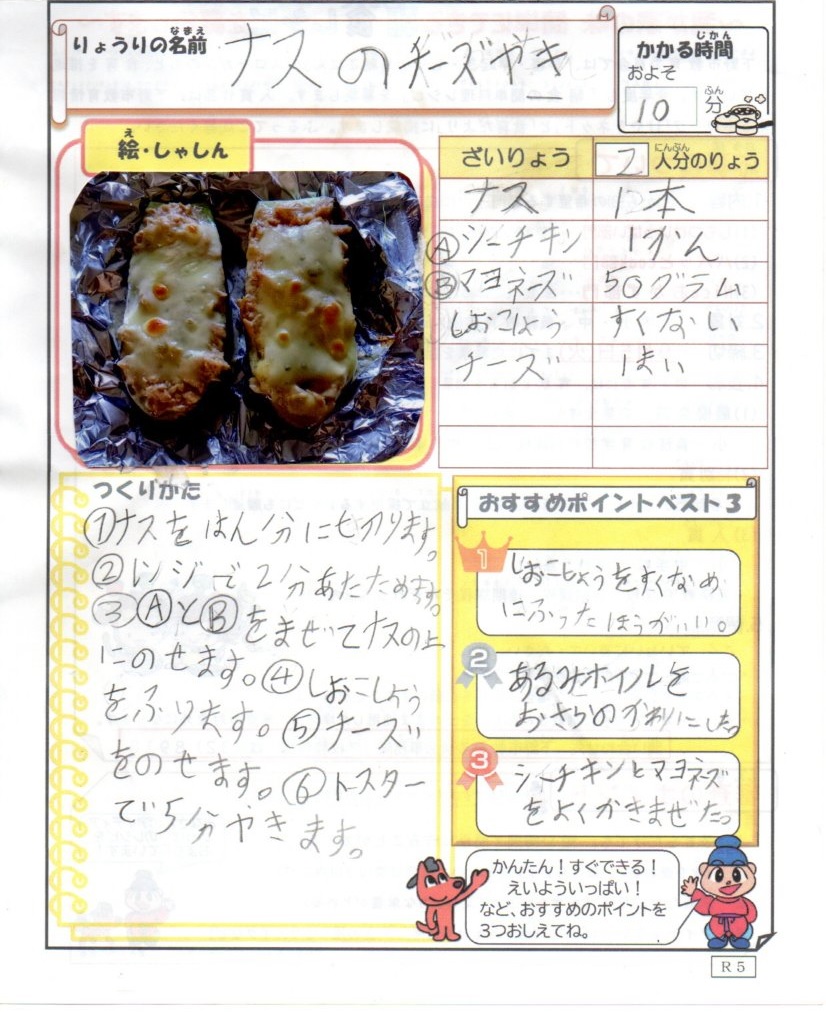 りょうりの名前
なまえ
ナスのチーズやき
かかる時間
じかん
およそ
10分
ふん
絵・しゃしん
え
ざいりょう
2人分のりょう
にんぶん
ナス 1本
Ⓐシーチキン 1かん
Ⓑマヨネーズ 50グラム
しおこしょう すくない
チーズ 1まい
つくりかた
①ナスをはん分に切ります。
②レンジで2分あたためます。
③ⒶとⒷをまぜてナスの上
にのせます。④しおこしょう
をふります。⑤チーズ
をのせます。⑥トースター
で5分やきます。
おすすめポイントベスト3
1
しおこしょうをすくなめ
にふったほうがいい。
2
あるみホイルを
おさらのかわりにした。
3
シーチキンとマヨネーズ
をよくかきまぜた。
かんたん！すぐできる！
えいよういっぱい！
など、おすすめのポイントを
3つおしえてね。
R5